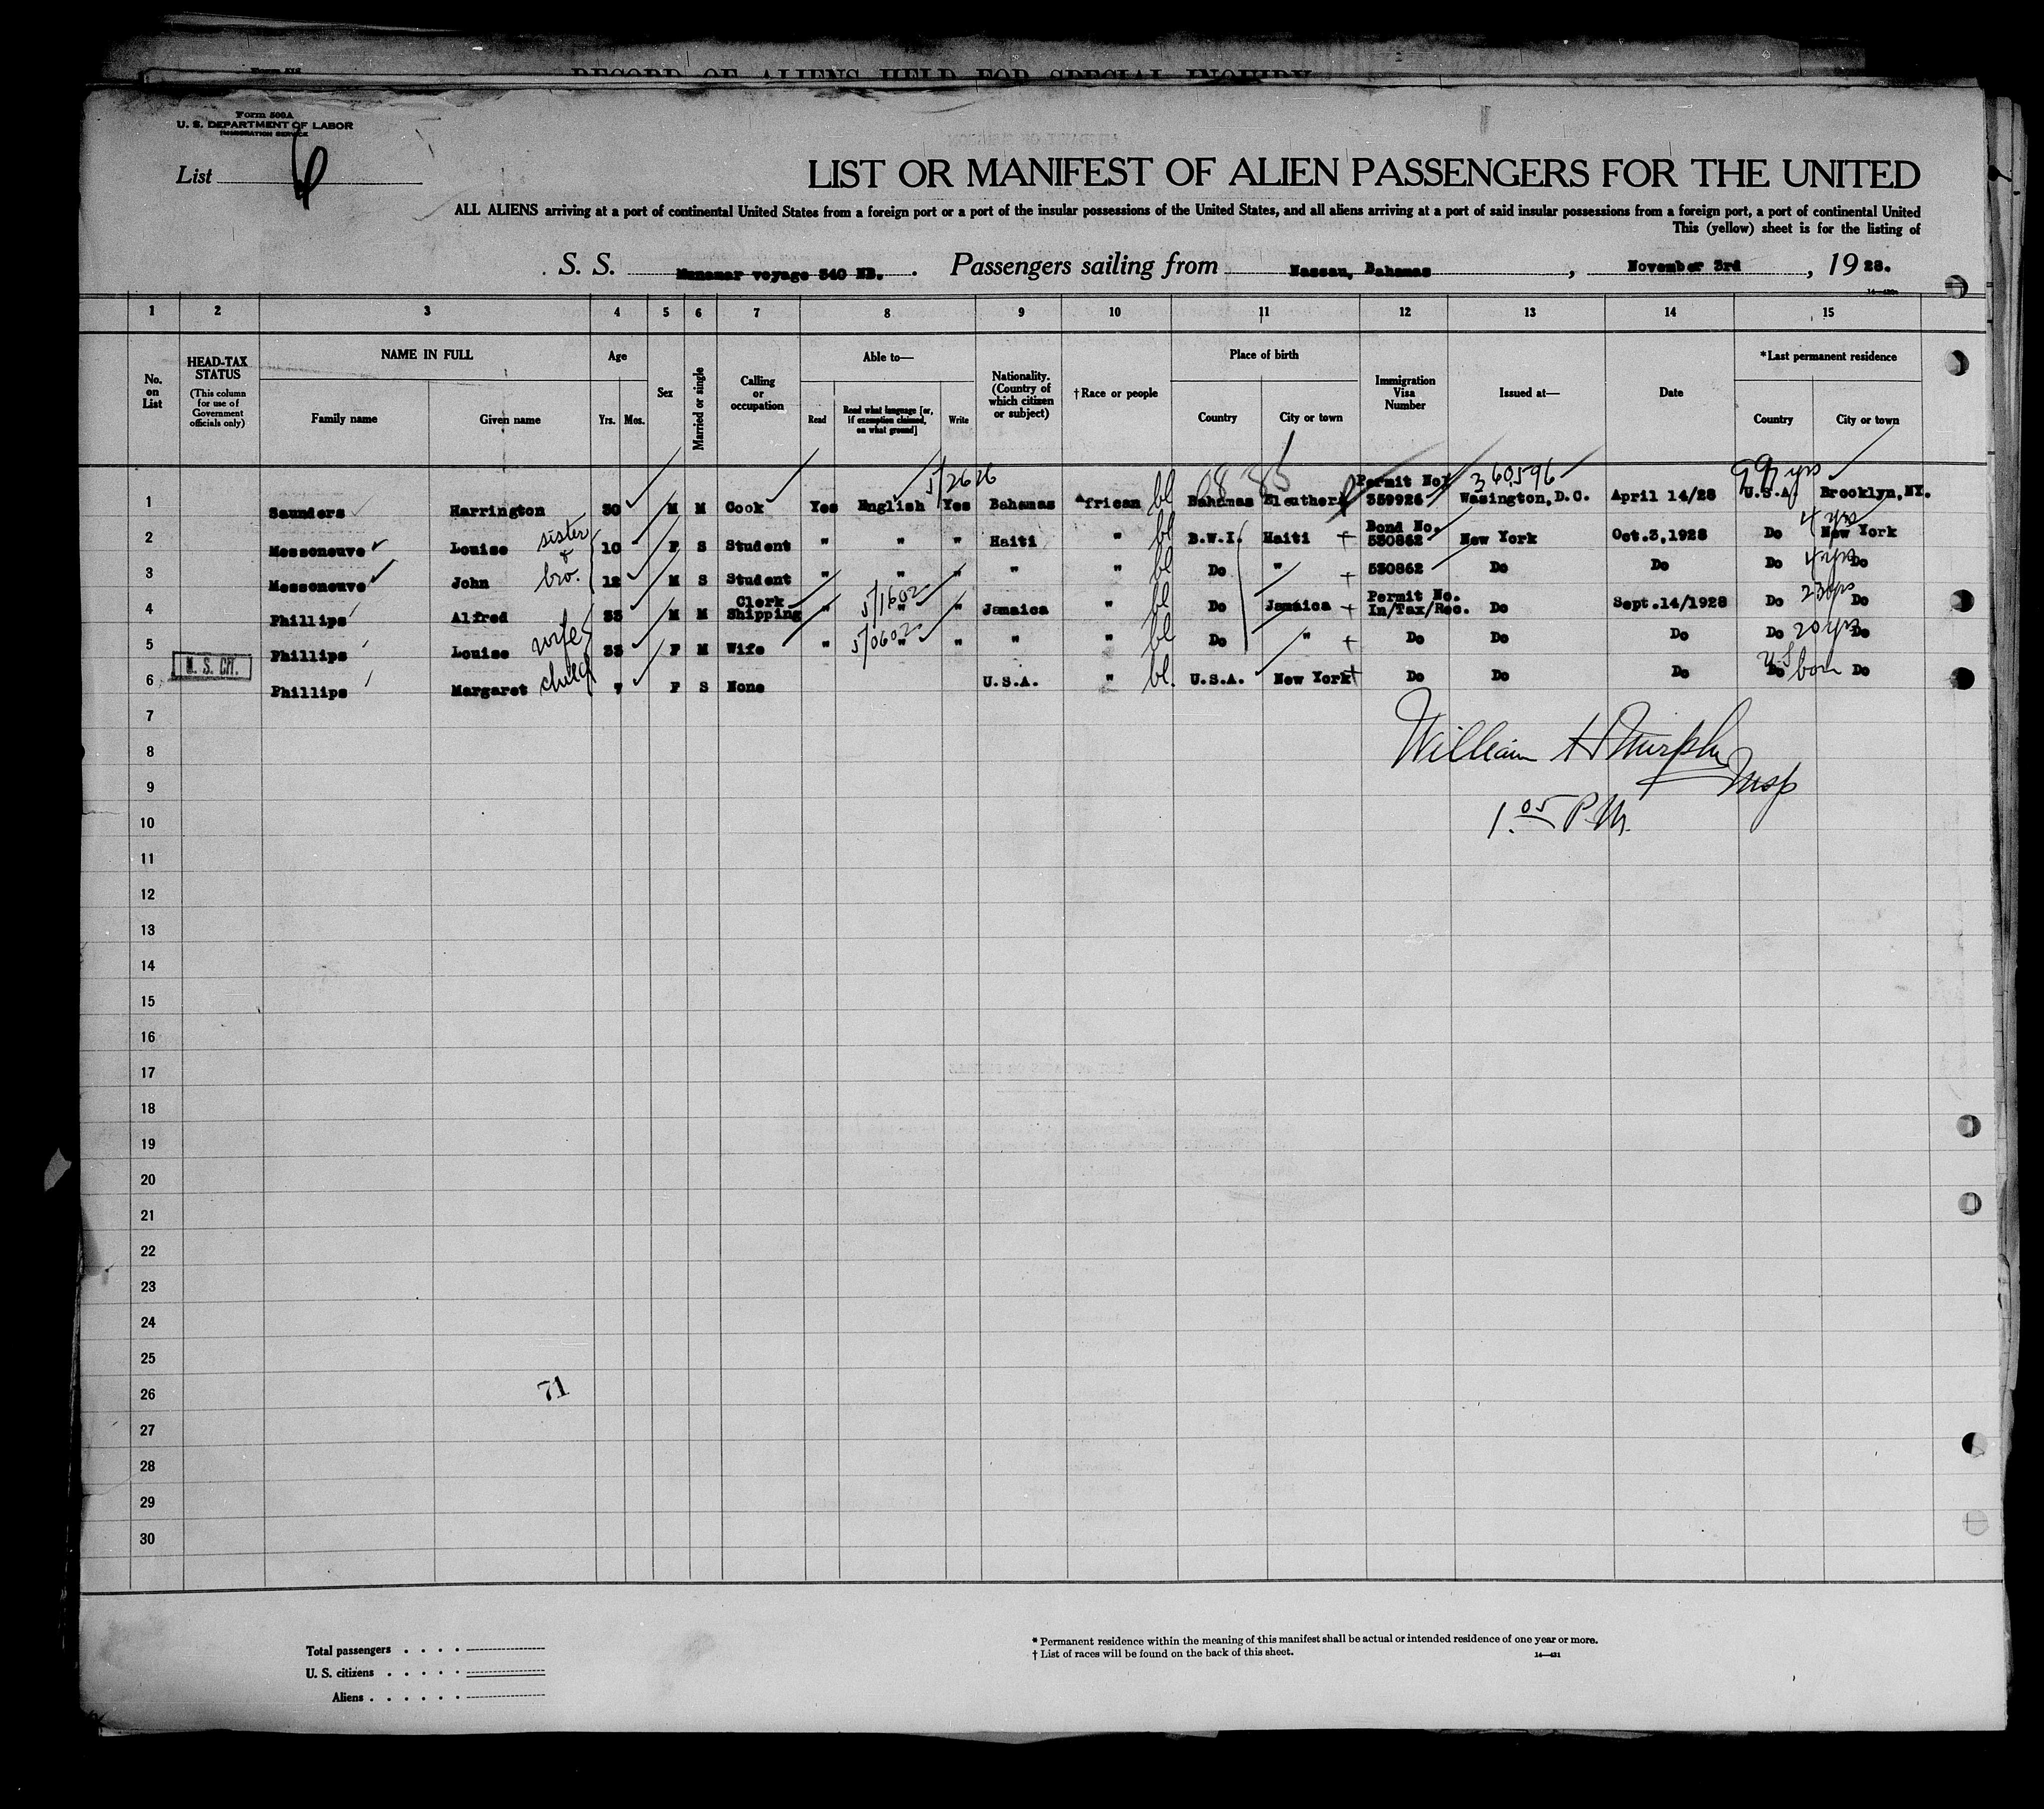 RECORD OF ALIENS HELD FOR SPECIAL INQUIRY
Form 500A
U. S. DEPARTMENT OF LABOR
IMMIGRATION SERVICE
List 6
LIST OR MANIFEST OF ALIEN PASSENGERS FOR THE UNITED
ALL ALIENS arriving at a port of continental United States from a foreign port or a port of the insular possessions of the United States, and all aliens arriving at a port of said insular possessions from a foreign port, a port of continental United
This (yellow) sheet is for the listing of
S. S. Munamar voyage 340 NB. Passengers sailing from Nassau, Bahamas, November 3rd, 1928.
1 2 3 4 5 6 7 8 9 10 11 12 13 14 15
No. on List
HEAD-TAX STATUS (This column for use of Government officials only)
NAME IN FULL
Family name Given name
Age
Yrs. Mos.
Sex
Married or single
Calling or occupation
Able to—
Read Read what language [or, if exemption claimed, on what ground] Write
Nationality. (Country of which citizen or subject)
†Race or people
Place of birth
Country City or town
Immigration Visa Number
Issued at—
Date
*Last permanent residence
Country City or town
5/2626 360596 yrs
1 Saunders Harrington 30 M M Cook Yes English Yes Bahamas African bl Bahamas Eleuthera Permit No. 359926 Wasington, D.C. April 14/28 U.S.A. Brooklyn, NY.
2 Messeneuve Louise sister & 10 F S Student " " " Haiti " bl B.W.I. Haiti Bond No. 530862 New York Oct.3,1928 Do 4 yrs New York
3 Messeneuve John bro. 12 M S Student " " " " " bl Do " 530862 Do Do Do 4 yrs Do
4 Phillips Alfred 33 M M Clerk Shipping " 5/1602 " " Jamaica " bl Do Jamaica Permit No. In/Tax/Rec. Do Sept.14/1928 Do 23 yrs Do
5 Phillips Louise wife 33 F M Wife " 5/0602 " " " " bl Do " Do Do Do Do 20 yrs Do
U. S. CIT.
6 Phillips Margaret child 7 F S None U.S.A. " bl. U.S.A. New York Do Do Do Do U.S born Do
7
William H Murphy
8
Insp
9
1.05 P.M.
10
11
12
13
14
15
16
17
18
19
20
21
22
23
24
25
26 71
27
28
29
30
Total passengers . . . .
U. S. citizens . . . . .
Aliens . . . . . .
* Permanent residence within the meaning of this manifest shall be actual or intended residence of one year or more.
† List of races will be found on the back of this sheet.
14—421